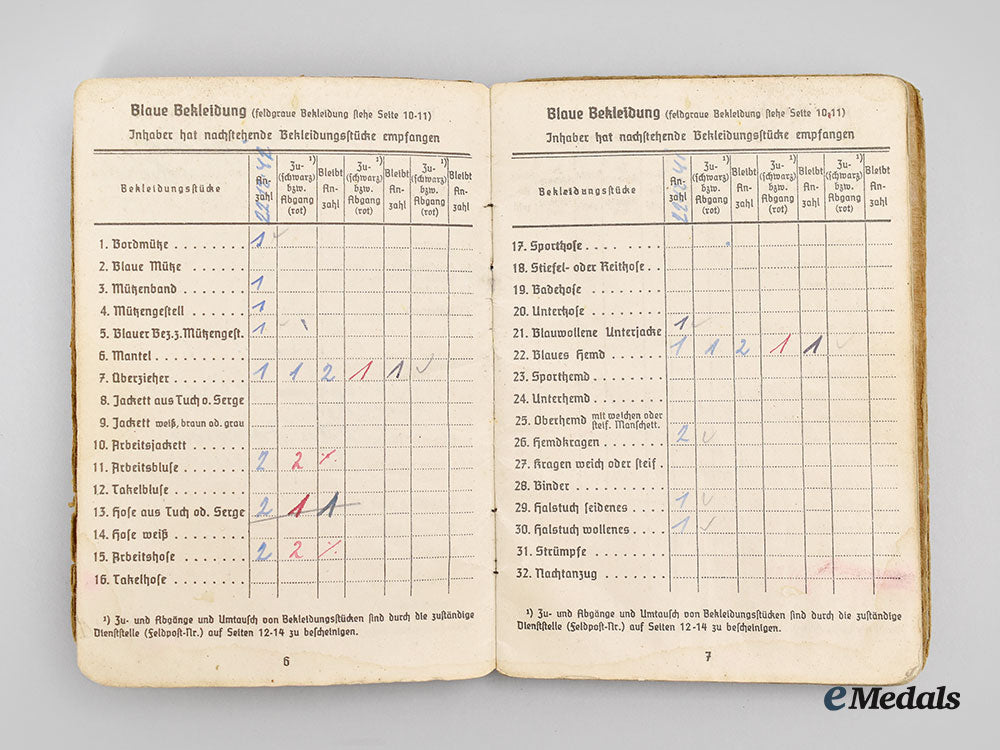 Blaue Bekleidung (feldgraue Bekleidung siehe Seite 10-11)
Inhaber hat nachstehende Bekleidungsstücke empfangen
Bekleidungsstücke An-zahl Zu-(schwarz) bzw. Abgang (rot) ¹) Bleibt An-zahl Zu-(schwarz) bzw. Abgang (rot) ¹) Bleibt An-zahl Zu-(schwarz) bzw. Abgang (rot) ¹) Bleibt An-zahl
1. Bordmütze 1
2. Blaue Mütze
3. Mützenband 1
4. Mützengestell 1
5. Blauer Bez. z. Mützengest. 1
6. Mantel
7. Überzieher 1 1 2 1 1
8. Jackett aus Tuch o. Serge
9. Jackett weiß, braun od. grau
10. Arbeitsjackett
11. Arbeitsbluse 2 2 %
12. Takelbluse
13. Hose aus Tuch od. Serge 2 1 1
14. Hose weiß
15. Arbeitshose 2 2 %
16. Takelhose
¹) Zu- und Abgänge und Umtausch von Bekleidungsstücken sind durch die zuständige
Dienststelle (Feldpost-Nr.) auf Seiten 12-14 zu bescheinigen.
6
Blaue Bekleidung (feldgraue Bekleidung siehe Seite 10-11)
Inhaber hat nachstehende Bekleidungsstücke empfangen
Bekleidungsstücke An-zahl Zu-(schwarz) bzw. Abgang (rot) ¹) Bleibt An-zahl Zu-(schwarz) bzw. Abgang (rot) ¹) Bleibt An-zahl Zu-(schwarz) bzw. Abgang (rot) ¹) Bleibt An-zahl
17. Sporthose
18. Stiefel- oder Reithose
19. Badehose
20. Unterhose
21. Blauwollene Unterjacke 1
22. Blaues Hemd 1 1 2 1 1
23. Sporthemd
24. Unterhemd
25. Oberhemd mit weichen oder steif. Manschett.
26. Hemdkragen 2
27. Kragen weich oder steif
28. Binder
29. Halstuch seidenes 1
30. Halstuch wollenes 1
31. Strümpfe
32. Nachtanzug
¹) Zu- und Abgänge und Umtausch von Bekleidungsstücken sind durch die zuständige
Dienststelle (Feldpost-Nr.) auf Seiten 12-14 zu bescheinigen.
7
eMedals